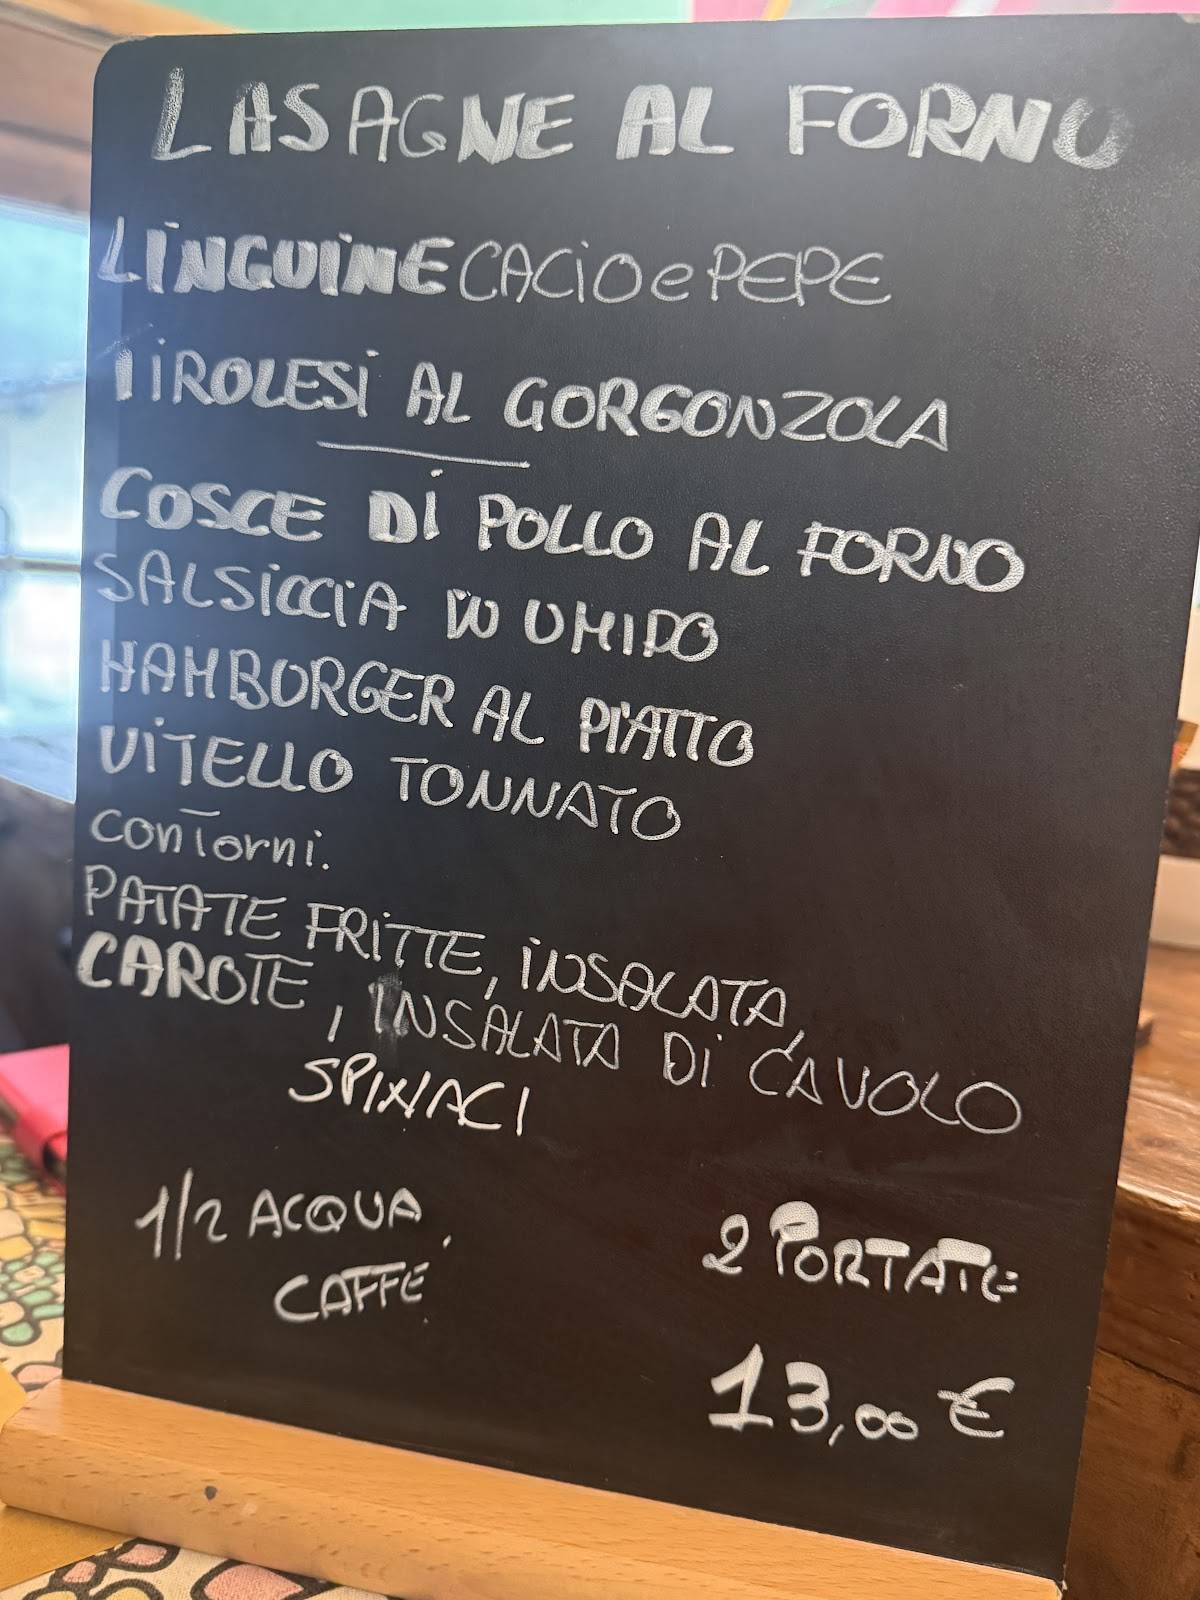 LASAGNE AL FORNO
LINGUINE CACIO e PEPE
TIROLESI AL GORGONZOLA
COSCE DI POLLO AL FORNO
SALSICCIA IN UMIDO
HAMBURGER AL PIATTO
VITELLO TONNATO
conTorni.
PATATE FRITTE, INSALATA,
CAROTE, INSALATA DI CAVOLO
SPINACI
1/2 ACQUA,
CAFFE
2 PORTATE
13,00 €